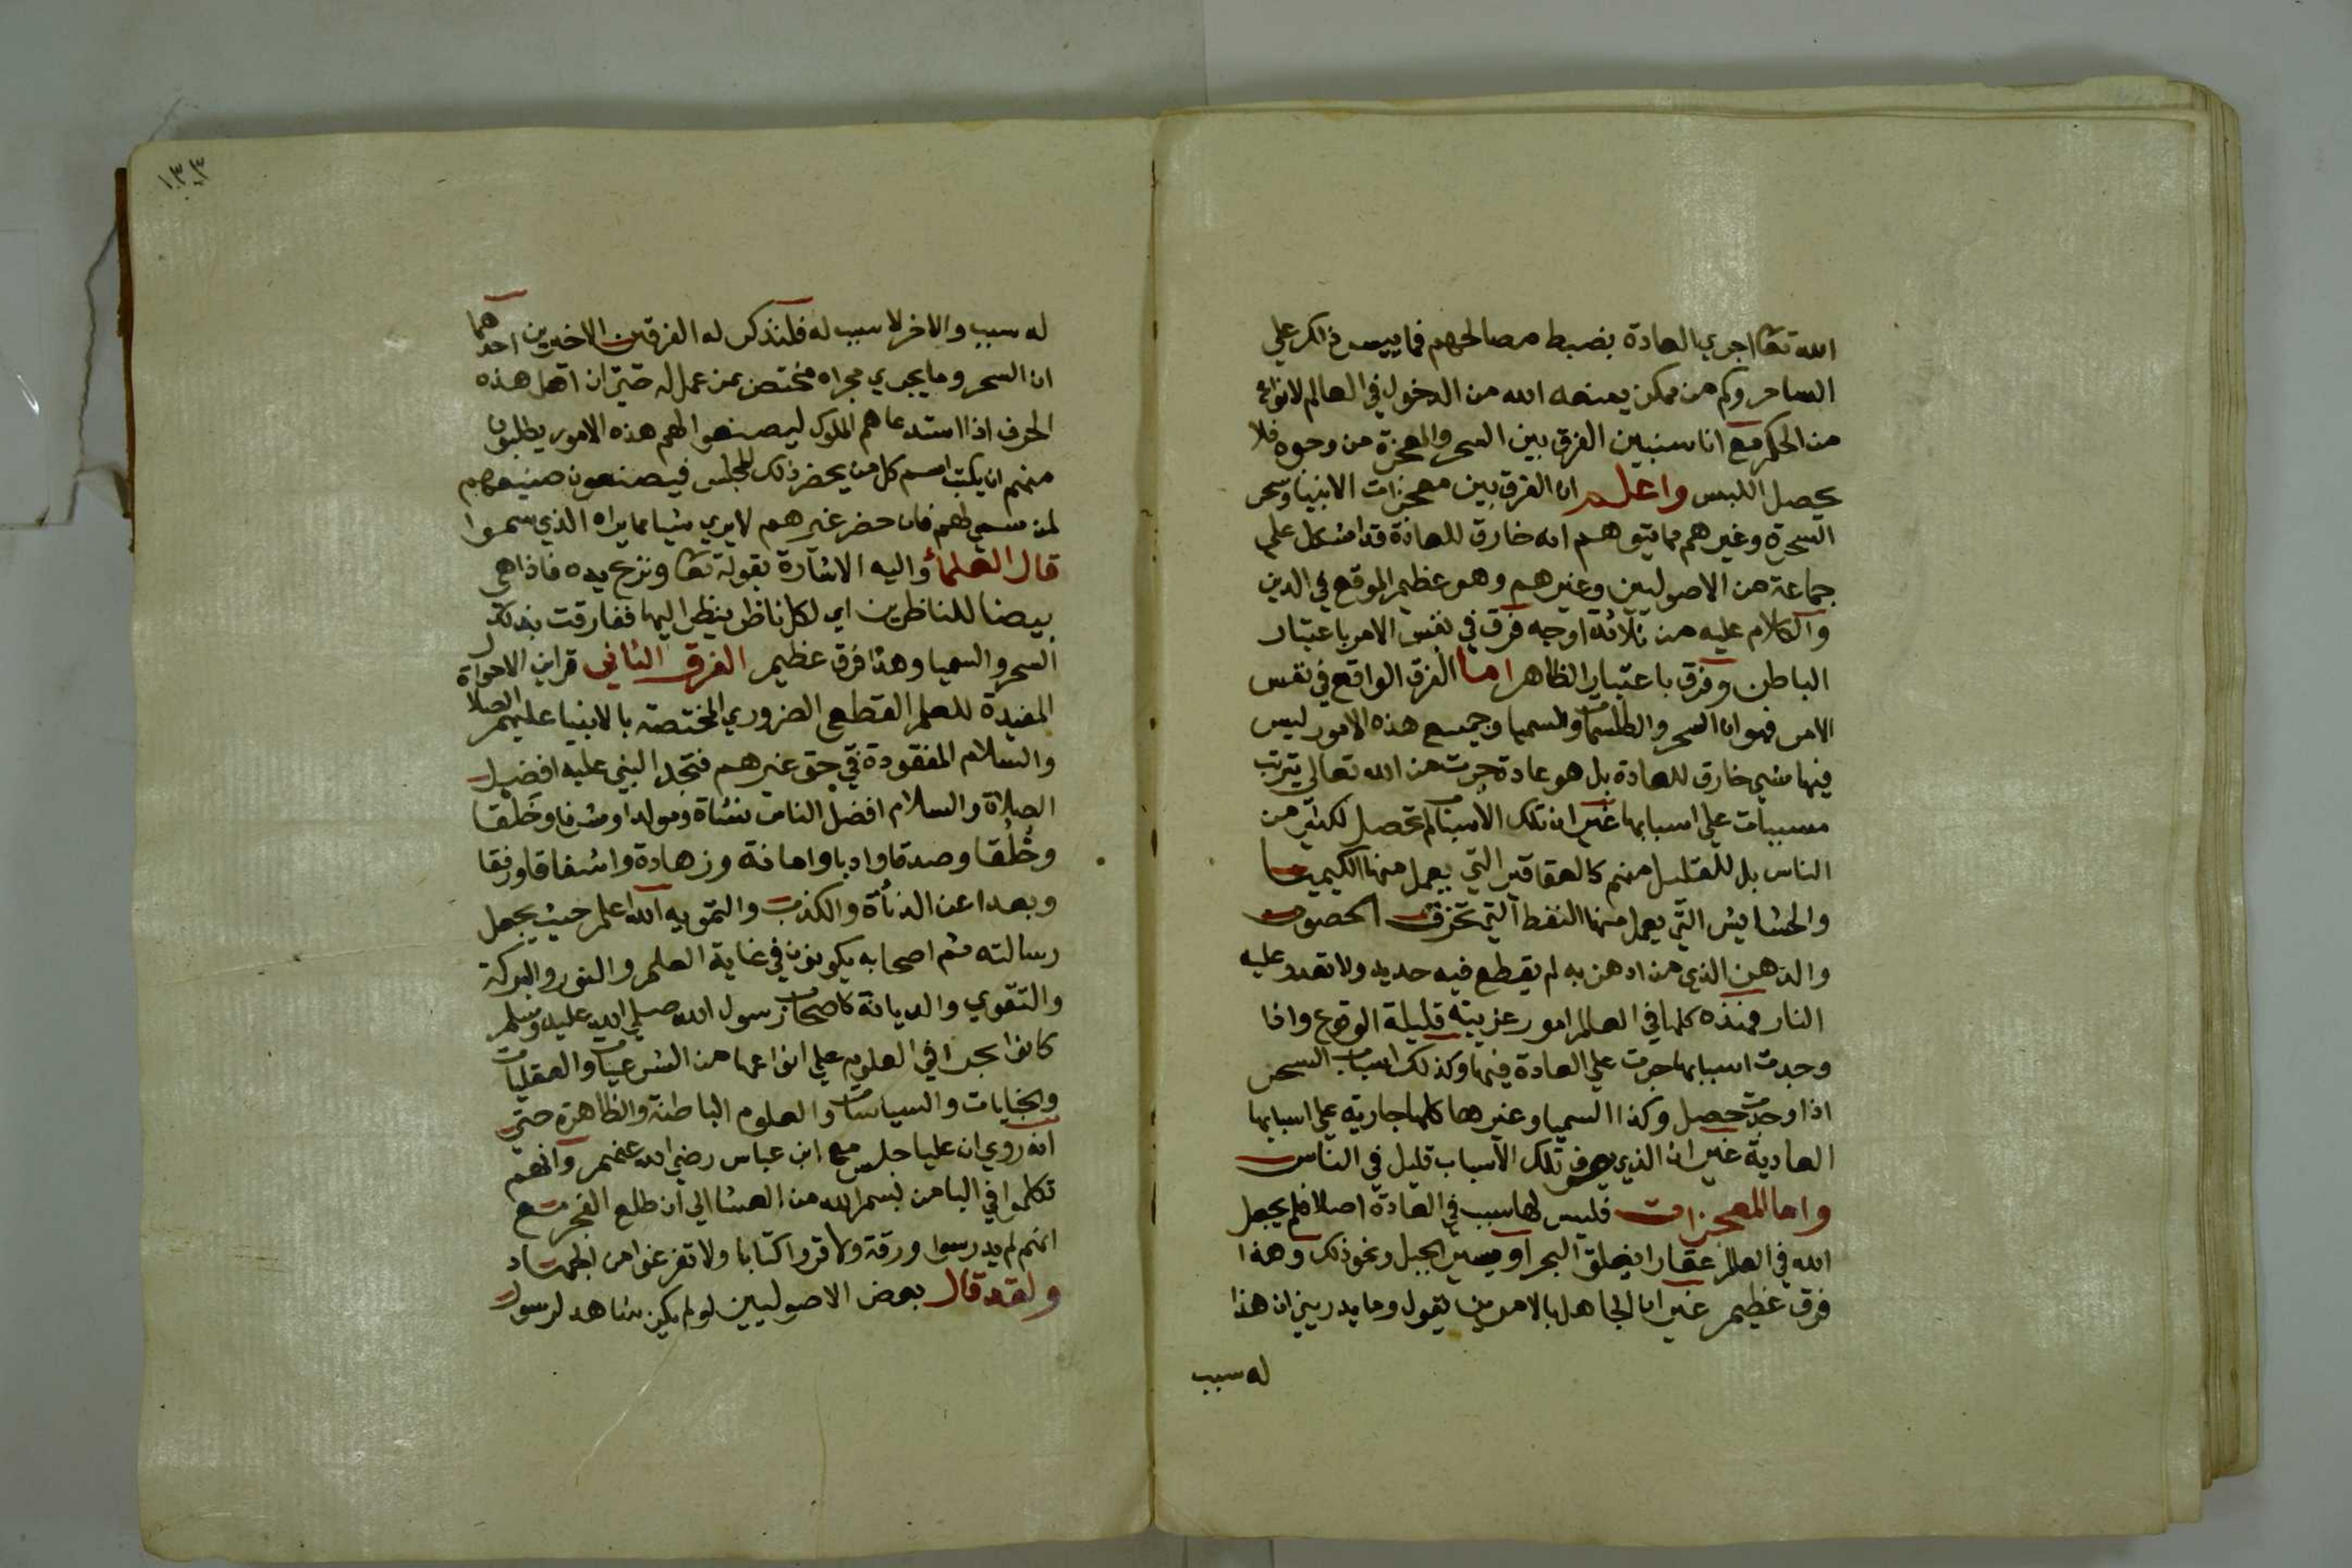 الله تعا اجري العادة بضبط مصالحهم فما ييسر ذلك علي
الساحر وكم من ممكن يمنعه الله من الدخول في العالم لانواع
من الحكم مع انا سنبين الفرق بين السحر والمعجزة من وجوه فلا
يحصل اللبس واعلم ان الفرق بين معجزات الانبيا وسحر
السحرة وغيرهم مما يتوهم انه خارق للعادة قد اشكل علي
جماعة من الاصوليين وغيرهم وهو عظيم الموقع في الدين
والكلام عليه من ثلاثة اوجه فرق في نفس الامر باعتبار
الباطن وفرق باعتبار الظاهر اما الفرق الواقع في نفس
الامر فهو ان السحر والطلسمات والسميا وجميع هذه الامور ليس
فيها شي خارق للعادة بل هو عادة جرت من الله تعالي بترتب
مسببات علي اسبابها غير ان تلك الاسباب لم تحصل لكثير من
الناس بل للقليل منهم كالعقاقير التي يعمل منها الكيميا
والحشايش التي يعمل منها النفط التي تخرق الحصون
والدهن الذي من ادهن به لم يقطع فيه حديد ولا تعدو عليه
النار فهذه كلها في العالم امور غريبة قليلة الوقوع واذا
وجدت اسبابها جرت علي العادة فيها وكذلك اسباب السحر
اذا وجدت حصل وكذا السميا وغيرها كلها جارية علي اسبابها
العادية غير ان الذي يعرف تلك الاسباب قليل في الناس
واما المعجزات فليس لها سبب في العادة اصلا فلم يجعل
الله في العالم عقارا يفلق البحر او يسير الجبل ونحو ذلك وهذا
فرق عظيم غير ان الجاهل بالامرين يقول وما يدريني ان هذا
له سبب
١٣٣
له سبب والاخر لا سبب له فلنذكر له الفرقين الاخيرين احدهما
ان السحر وما يجري مجراه مختص بمن عمل له حتي ان اهل هذه
الحرف اذا استدعاهم الملوك ليصنعوا لهم هذه الامور يطلبون
منهم ان يكتب اسم كل من يحضر ذلك المجلس فيصنعون صنيعهم
لمن سمي لهم فان حضر غيرهم لا يري شيا مما يراه الذي سموا
قال العلماء واليه الاشارة بقوله تعا ونزع يده فاذا هي
بيضا للناظرين اي لكل ناظر ينظر اليها ففارقت بذلك
السحر والسميا وهذا فرق عظيم الفرق الثاني قراين الاحوال
المفيدة للعلم القطعي الضروري المختصة بالانبيا عليهم الصلاة
والسلام المفقودة في حق غيرهم فتجد النبي عليه افضل
الصلاة والسلام افضل الناس نشاة ومولدا وشرفا وخَلقا
وخُلُقا وصدقا وادبا وامانة وزهادة واشفاقا ورفقا
وبعدا عن الدناُة والكذب والتمويه الله اعلم حيث يجعل
رسالته ثم اصحابه يكونون في غاية العلم والنور والبركة
والتقوي والديانة كاصحاب رسول الله صلي الله عليه وسلم
كانوا بحرا في العلوم علي انواعها من الشرعيات والعقليات
والحسابات والسياسات والعلوم الباطنة والظاهرة حتي
انه روي ان عليا جلس مع ابن عباس رضي الله عنهم وانهم
تكلموا في البا من بسم الله من العشا الي ان طلع الفجر مع
انهم لم يدرسوا ورقة ولا قروا كتابا ولا تفرغوا من الجهاد
ولقد قال بعض الاصوليين لو لم يكن شاهد لرسول